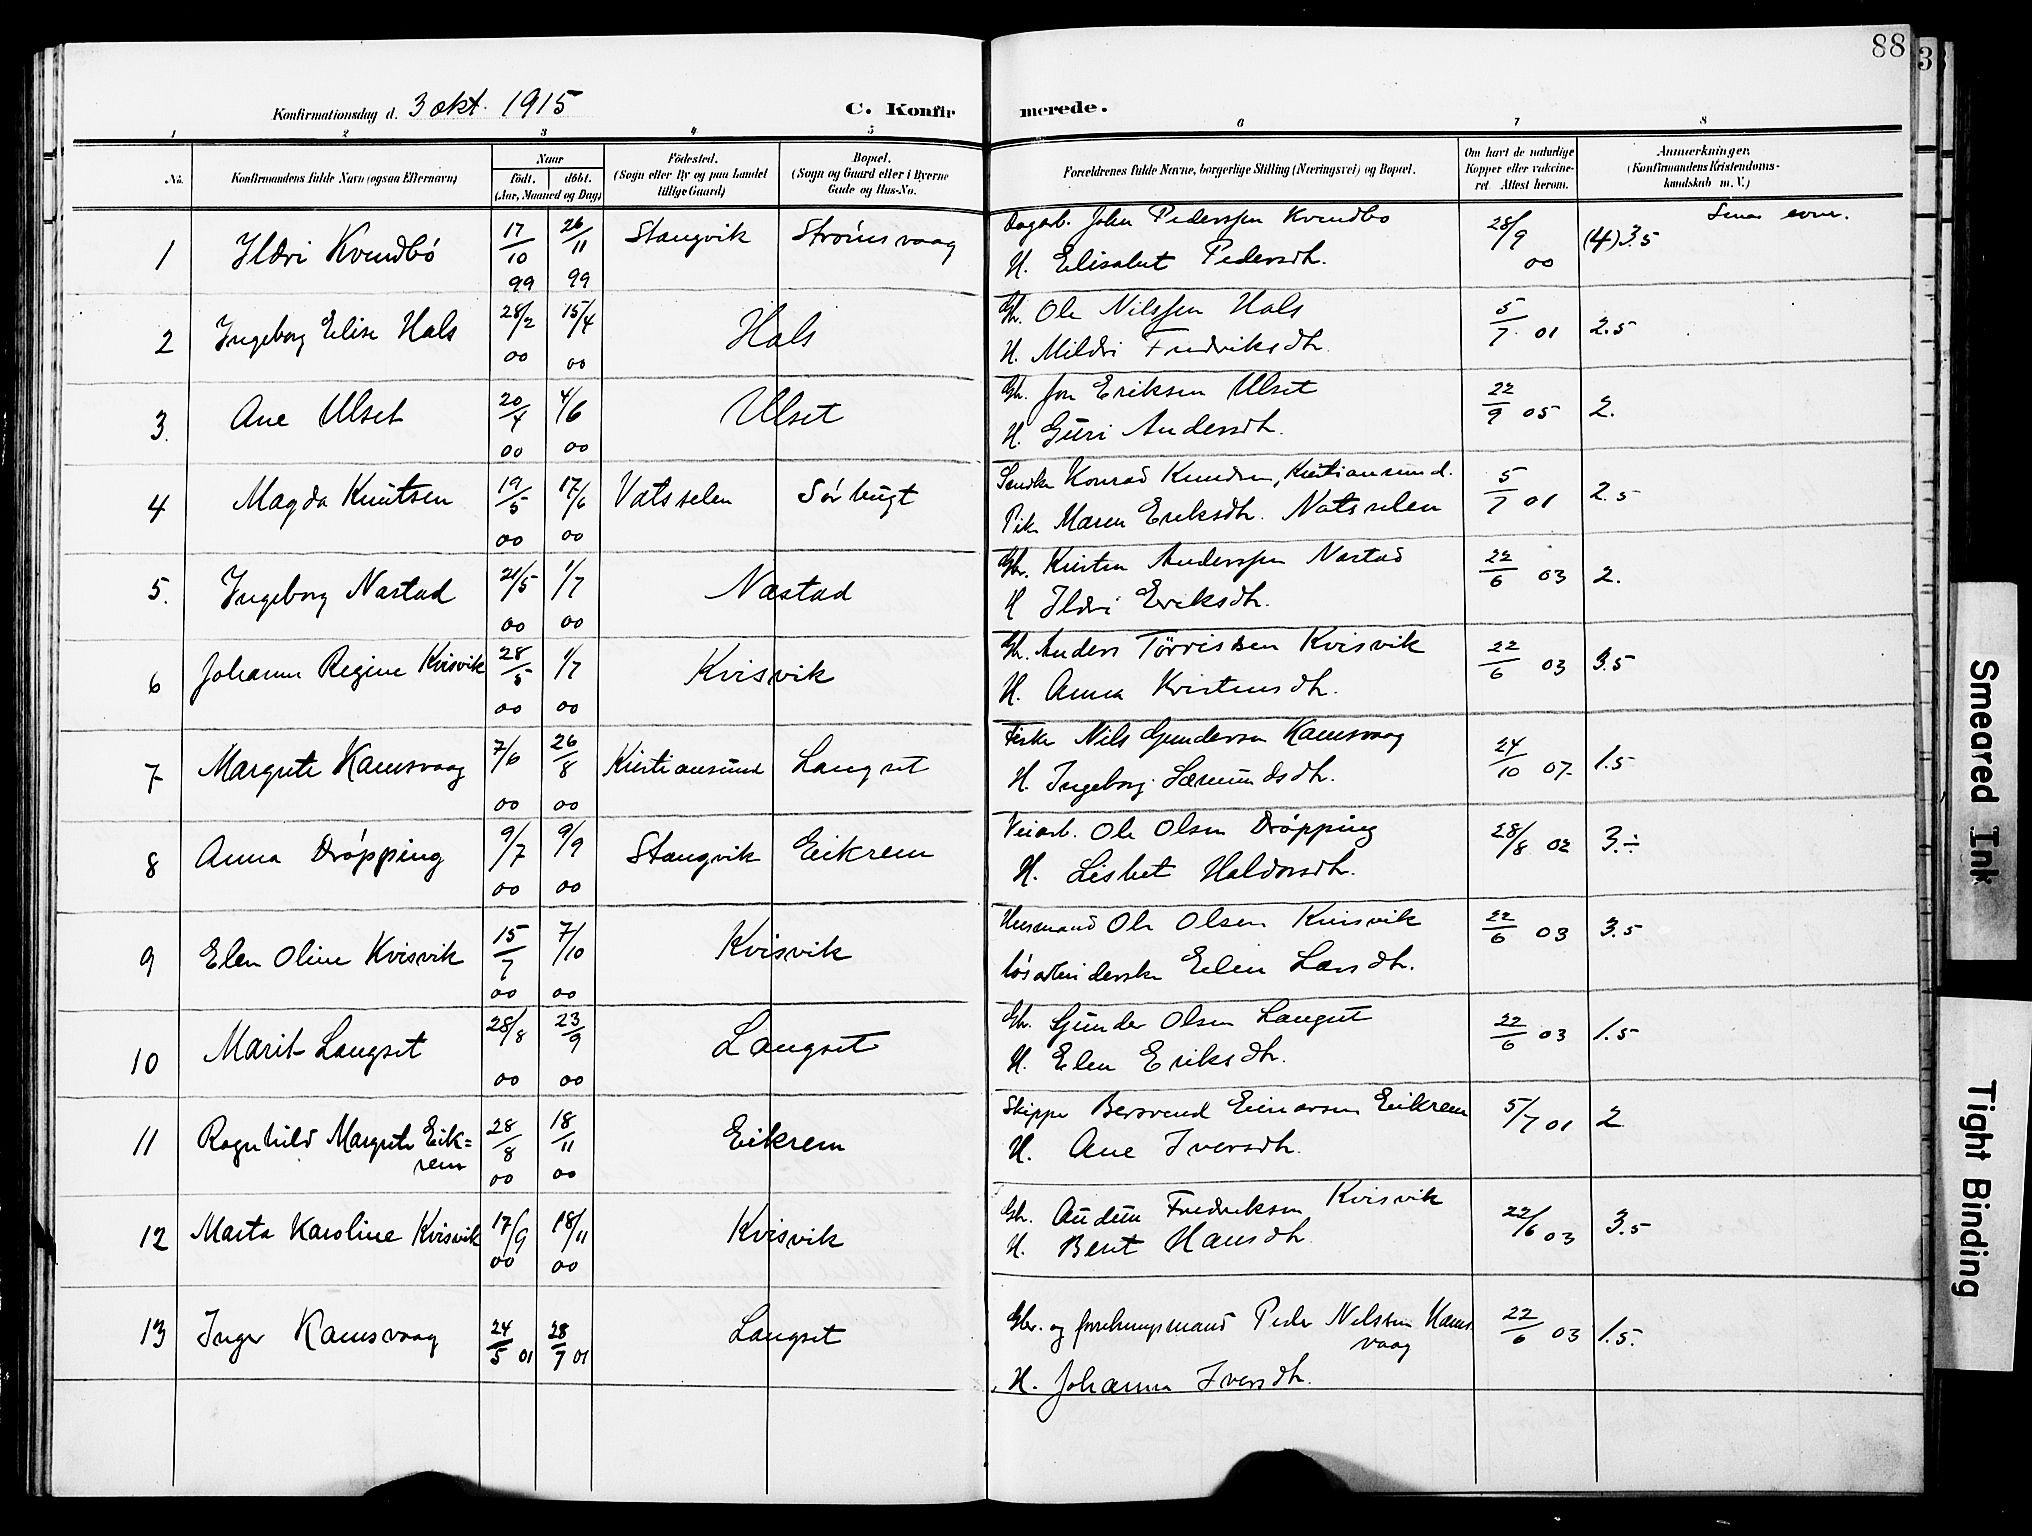 88
3
Konfirmationsdag d. 3 okt. 1915
C. Konfirmerede.
1 2 3 4 5 6 7 8
No.
Konfirmandens fulde Navn (ogsaa Efternavn)
Naar
født. døbt.
(Aar, Maaned og Dag)
Fødested.
(Sogn eller By og paa Landet
tillige Gaard)
Bopæl.
(Sogn og Gaard eller i Byerne
Gade og Hus-No.
Forældrenes fulde Navne, borgerlige Stilling (Næringsvei) og Bopæl.
Om havt de naturlige
Kopper eller vakcine-
ret Attest herom.
Anmærkninger.
(Konfirmandens Kristendoms-
kundskab m. V.)
1 Ildri Kvendbö 17/10 99 26/11 99 Stangvik Strömsvaag
Dagarb. John Pederssen Kvendbö
H. Elisabet Pedersdtr. 28/9 00 (4) 3.5
2 Ingeborg Elise Hals 28/2 00 15/4 00 Hals
Gbr. Ole Nilssen Hals
H. Mildri Fredriksdtr. 5/7 01 2.5
3. Ane Ulset 20/4 00 4/6 00 Ulset
Gbr. Jon Eriksen Ulset
H. Guri Andersdtr. 22/9 05 2.
4 Magda Knutsen 19/5 00 17/6 00 Vatsselen Sörbugt
Konrad Knudsen, Kristiansund.
Pike Maren Eriksdtr. Vatsselen 5/7 01 2.5
5. Ingeborg Nastad 21/5 00 1/7 00 Nastad
Gbr. Kristen Anderssen Nastad
H Ildri Eriksdtr. 22/6 03 2.
6 Johanne Regine Kvisvik 28/5 00 1/7 00 Kvisvik
Gbr. Anders Törrissen Kvisvik
H. Anna Kristensdtr. 22/6 03 3.5
7 Margrete Kamsvaag 7/6 00 26/8 00 Kristiansund Langset
Fisker Nils Gundersen Kamsvaag
H. Ingeborg Sæmundsdtr. 24/10 07. 1.5
8 Anna Dröpping 9/7 00 9/9 00 Stangvik Eikrem
Veiarb. Ole Olsen Dröpping
H. Lisbet Haldorsdtr. 28/8 02 3.÷
9 Elen Oline Kvisvik 15/7 00 7/10 00 Kvisvik
Husmand Ole Olsen Kvisvik
lösarbeiderske Elen Larsdtr. 22/6 03 3.5
10 Marit Langset 28/8 00 23/9 00 Langset
Gbr. Gunder Olsen Langset
H. Elen Eriksdtr. 22/6 03 1.5
11 Ragnhild Margrete Eik=
rem 28/8 00 18/11 00 Eikrem
Skipper Bersvend Einarsen Eikrem
H. Ane Iversdtr. 5/7 01 2
12 Marta Karoline Kvisvik 17/9 00 18/11 00 Kvisvik
Gbr. Audun Fredriksen Kvisvik
H. Berit Hansdtr. 22/6 03 3.5
13 Inger Kamsvaag 24/5 01 28/7 01 Langset
Gbr. og forretningsmand Peder Nilssen Kams
vaag
H. Johanna Iversdtr. 22/6 03 1.5.
Smeared Ink
Tight Binding